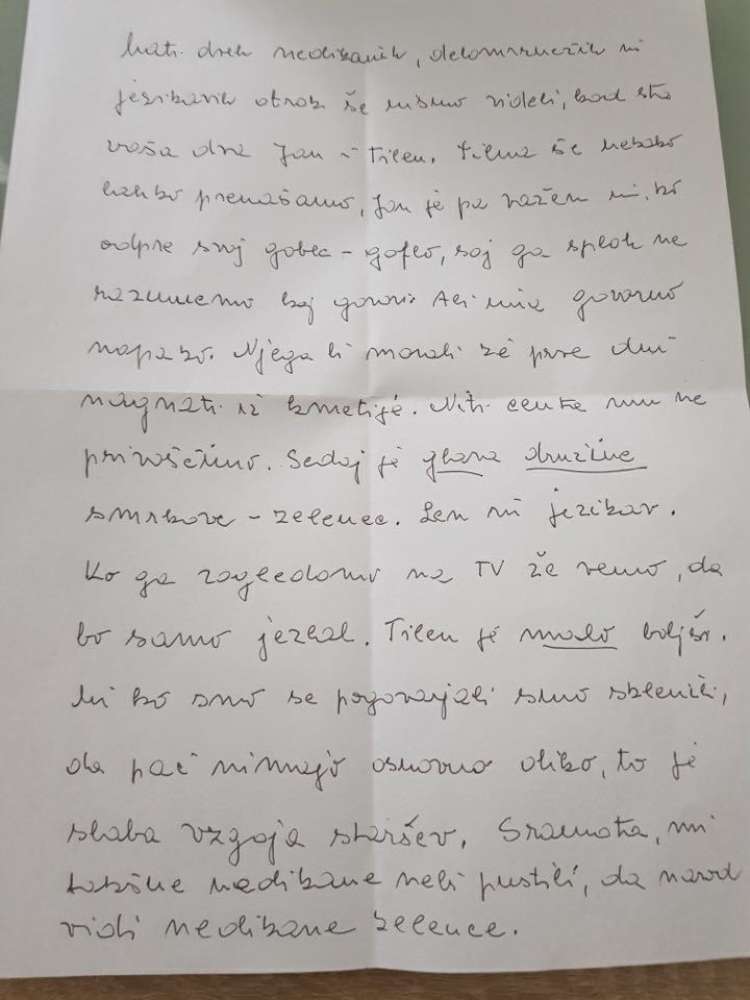 Kakih dveh nedikanih, delomrznežih in
jezikavih otrok še nismo videli, kod sta
vaša dva Jan i Tilen. Tilna še nekako
lahko prenašamo, Jan je pa važen in, ko
odpre svoj gobec - gofljo, saj ga sploh ne
razumemo kaj govori. Ali ima govorno
napako. Njega bi morali že prve dni
nagnati iz kmetije. Niti centa mu ne
privoščimo. Sedaj je glava družine
smrkove - zelenec. Len in jezikav.
Ko ga zagledamo na TV že vemo, da
bo samo jezikal. Tilen je malo boljši.
Mi ko smo se pogovarjali smo sklenili,
da pač nimajo osnovno oliko, to je
slaba vzgoja staršev. Sramota, mi
takšne nedikane nebi pustili, da narod
vidi nedikane zelence.